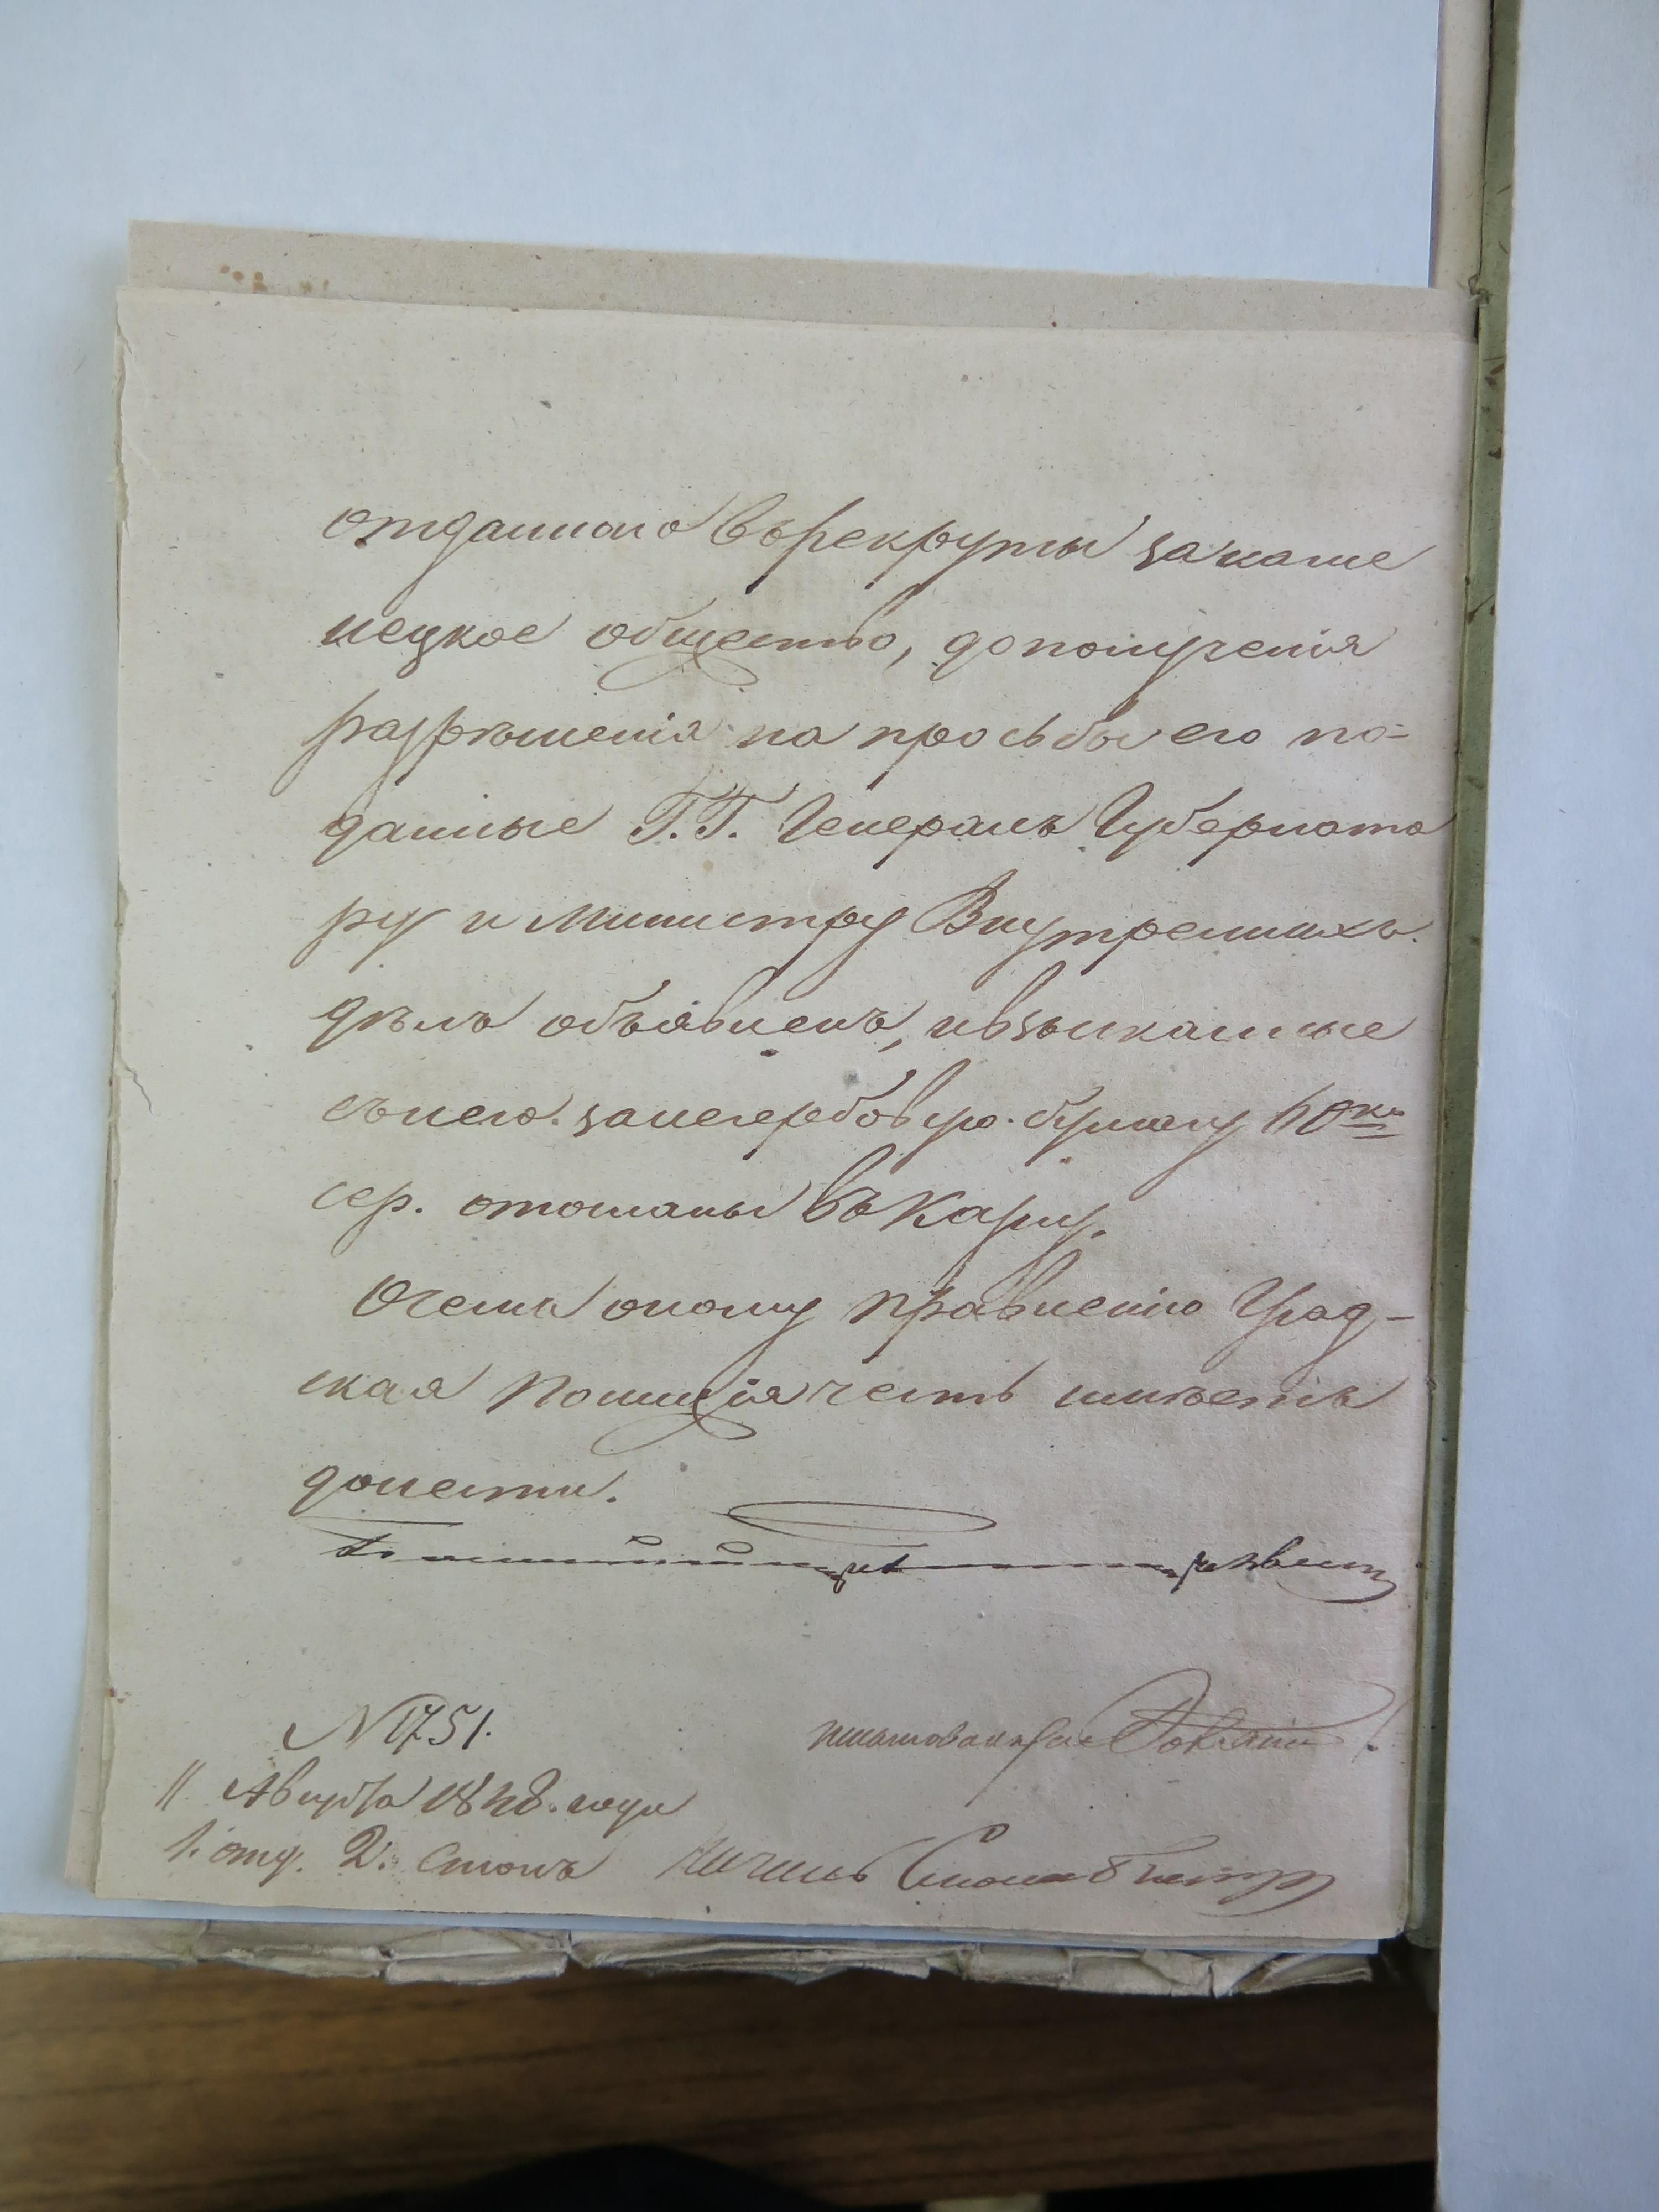 отданнаго въ рекруты за каме
нецкое общество, до полученія
разрѣшенія на просьбы его по-
данные Г.Г. Генералъ Губернато
ру и Министру Внутреннихъ
дѣлъ объявленъ, и взысканные
съ него за негербовую бумагу 60 к
сер. отосланы въ Казну.
О чемъ оному правленію Град-
ская Полиція честь имѣетъ
донести.
Полиціймейстеръ
N 1751.
11 Августа 1848. года
1. отд. 2. столъ